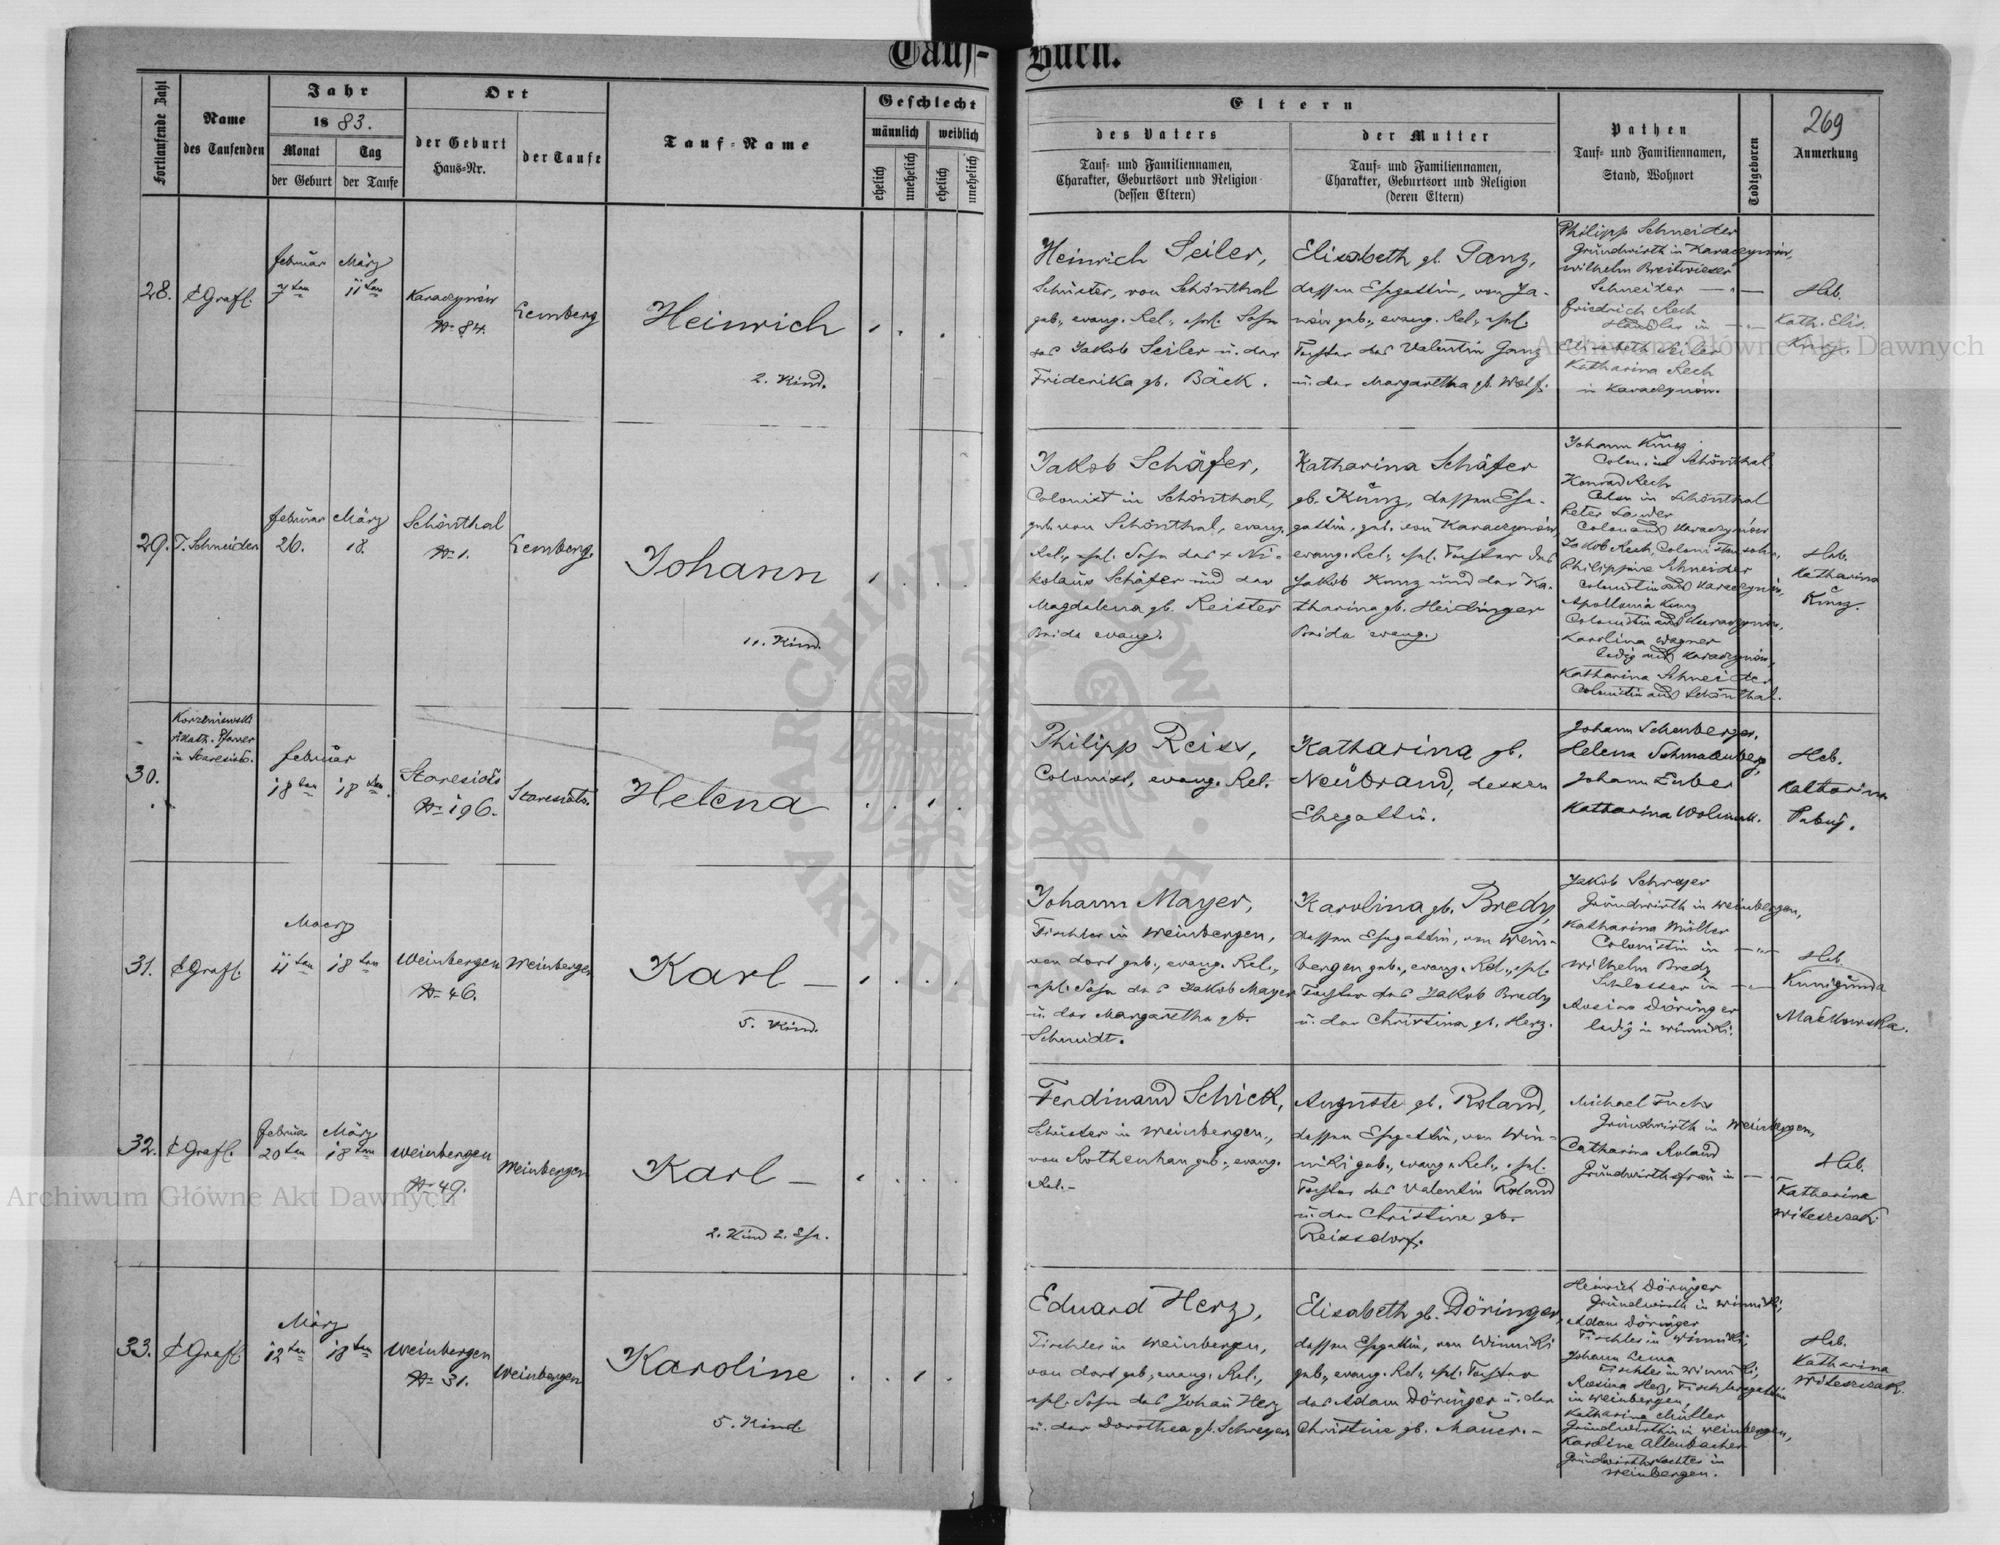 Tauf-Buch.
269
Fortlaufende Zahl
Name
des Taufenden
Jahr
1883.
Monat
Tag
der Geburt
der Taufe
Ort
der Geburt
Haus-Nr.
der Taufe
Tauf-Name
Geschlecht
männlich
weiblich
ehelich
unehelich
ehelich
unehelich
Eltern
des Vaters
Tauf- und Familiennamen,
Charakter, Geburtsort und Religion
(dessen Eltern)
der Mutter
Tauf- und Familiennamen,
Charakter, Geburtsort und Religion
(deren Eltern)
Pathen
Tauf- und Familiennamen,
Stand, Wohnort
Todtgeboren
Anmerkung
28.
Grafl.
Februar
7ten
März
11ten
Karaczynów
Nr. 84.
Lemberg
Heinrich
2. Kind.
Heinrich Seiler,
Schuster, von Schönthal
geb., evang. Rel., ehel. Sohn
des Jakob Seiler u. der
Friderika gb. Bäck.
Elisabeth gb. Ganz,
dessen Ehegattin, von Ja-
now geb., evang. Rel., ehel.
Tochter des Valentin Ganz
u. der Margaretha gb. Wolf.
Philipp Schneider
Grundwirth in Karaczynów,
Wilhelm Breitwieser
Schneider
Friedrich Rech
Elisabeth Seiler
Katharina Rech
in Karaczynów.
Heb.
Kath. Elis.
Kunz.
29.
J. Schneider
Februar
26.
März
18.
Schönthal
Nr. 1.
Lemberg.
Johann
11. Kind.
Jakob Schäfer,
Colonist in Schönthal,
geb. von Schönthal, evang.
Rel., ehel. Sohn des + Ni-
kolaus Schäfer und der
Magdalena gb. Reister
Beide evang.
Katharina Schäfer
gb. Kunz, dessen Ehe-
gattin, geb. von Karaczynów
evang. Rel., ehel. Tochter des
Jakob Kunz und der Ka-
tharina gb. Heidinger
Beide evang.
Johann Kunz
Colon. in Schönthal
Konrad Rech
Colon in Schönthal
Peter Lauer
Colon aus Karaczynów
Jakob Rech, Colonistensohn,
Philippine Schneider
Colonistin aus Karaczynów,
Apollonia Kunz
Colonistin aus Karaczynów,
Karolina Wagner
ledig aus Karaczynów,
Katharina Schneider
Colonistin aus Schönthal.
Heb.
Katharina
Kunz.
30.
Korzeniowski
r. kath. Pfarrer
in Staresiolo.
Februar
18ten
18ten
Staresioło
Nr. 196.
Staresioło.
Helena
Philipp Reiss,
Colonist, evang. Rel.
Katharina gb.
Neubrand, dessen
Ehegattin.
Johann Schenberger,
Helena Schmalenberg,
Johann Huber
Katharina
Heb.
Katharina
31.
Grafl.
Maerz
11ten
18ten
Weinbergen
Nr. 46.
Weinbergen
Karl
5. Kind.
Johann Mayer,
Tischler in Weinbergen,
von dort geb., evang. Rel.,
ehel. Sohn des Jakob Mayer
u. der Margaretha gb.
Schmidt.
Karolina gb. Bredy,
dessen Ehegattin, von Wein-
bergen geb., evang. Rel., ehel.
Tochter des Jakob Bredy
u. der Christina gb. Herz.
Jakob Schreyer
Grundwirth in Weinbergen,
Katharina Müller
Colonistin in
Wilhelm Bredy
Schlosser in
Rosina Döringer
ledig in Winniki.
Heb.
Kunigunda
Maćkowska.
32.
Grafl.
Februar
20ten
März
18ten
Weinbergen
Nr. 49.
Weinbergen
Karl
2. Kind 2. Ehe.
Ferdinand Schick,
Schuster in Weinbergen,
von Rothenhan geb., evang.
Rel.
Auguste gb. Roland,
dessen Ehegattin, von Win-
niki geb., evang. Rel., ehel.
Tochter des Valentin Roland
u. der Christine gb.
Reissdorf.
Michael Fuchs
Grundwirth in Weinbergen,
Catharina Roland
Grundwirthsfrau in
Heb.
Katharina
Witeszczak.
33.
Grafl.
März
12ten
18ten
Weinbergen
Nr. 31.
Weinbergen
Karoline
5. Kind.
Eduard Herz,
Tischler in Weinbergen,
von dort geb., evang. Rel.,
ehel. Sohn des Johan Herz
u. der Dorothea gb. Schreyer
Elisabeth gb. Döringer,
dessen Ehegattin, von Winniki
geb., evang. Rel., ehel. Tochter
des Adam Döringer u. der
Christine gb. Mauer.
Heinrich Döringer
Grundwirth in Winniki,
Adam Döringer
Tischler in Winniki,
Johann Lema
Tischler in Winniki,
Rosina Herz, Tischlersgattin
in Weinbergen,
Katharina Müller
Grundwirthin in Weinbergen,
Karoline Altenbacher
Grundwirthstochter in
Weinbergen.
Heb.
Katharina
Witeszczak.
Archiwum Główne Akt Dawnych
Archiwum Główne Akt Dawnych
ARCHIWUM GŁÓWNE AKT DAWNYCH